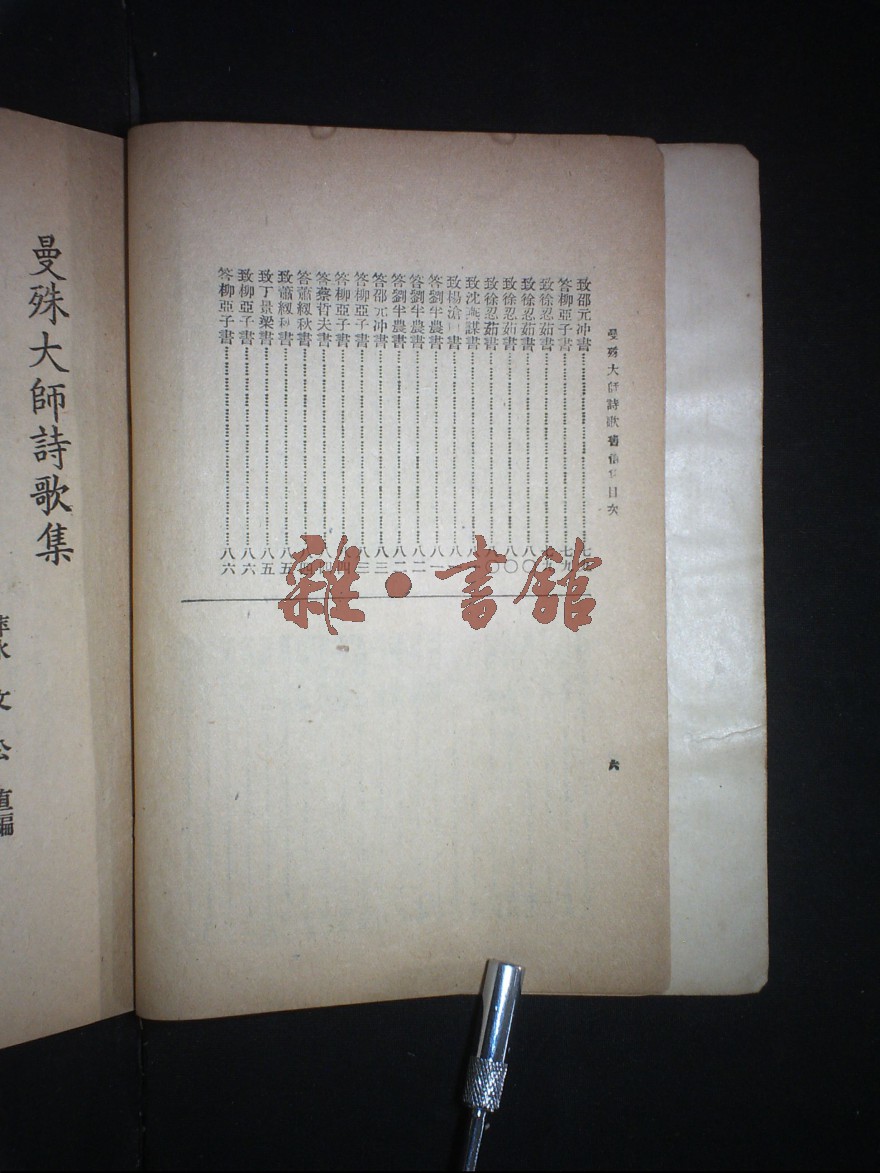 曼殊大師詩歌書信集目次
六
致邵元冲書……七九
答柳亞子書……七九
致徐忍茹書……七九
致徐忍茹書……八〇
致徐忍茹書……八〇
致徐忍茹書……八〇
致沈燕謀書……八
致楊滄白書……八
答劉半農書……八一
答劉半農書……八二
答劉半農書……八二
答邵元冲書……八三
答柳亞子書……八三
答柳亞子書……八四
答蔡哲夫書……八四
答蕭紉秋書……八四
致蕭紉秋書……八五
致丁景梁書……八五
致柳亞子書……八六
答柳亞子書……八六
曼殊大師詩歌集
文公直編
雜·書館